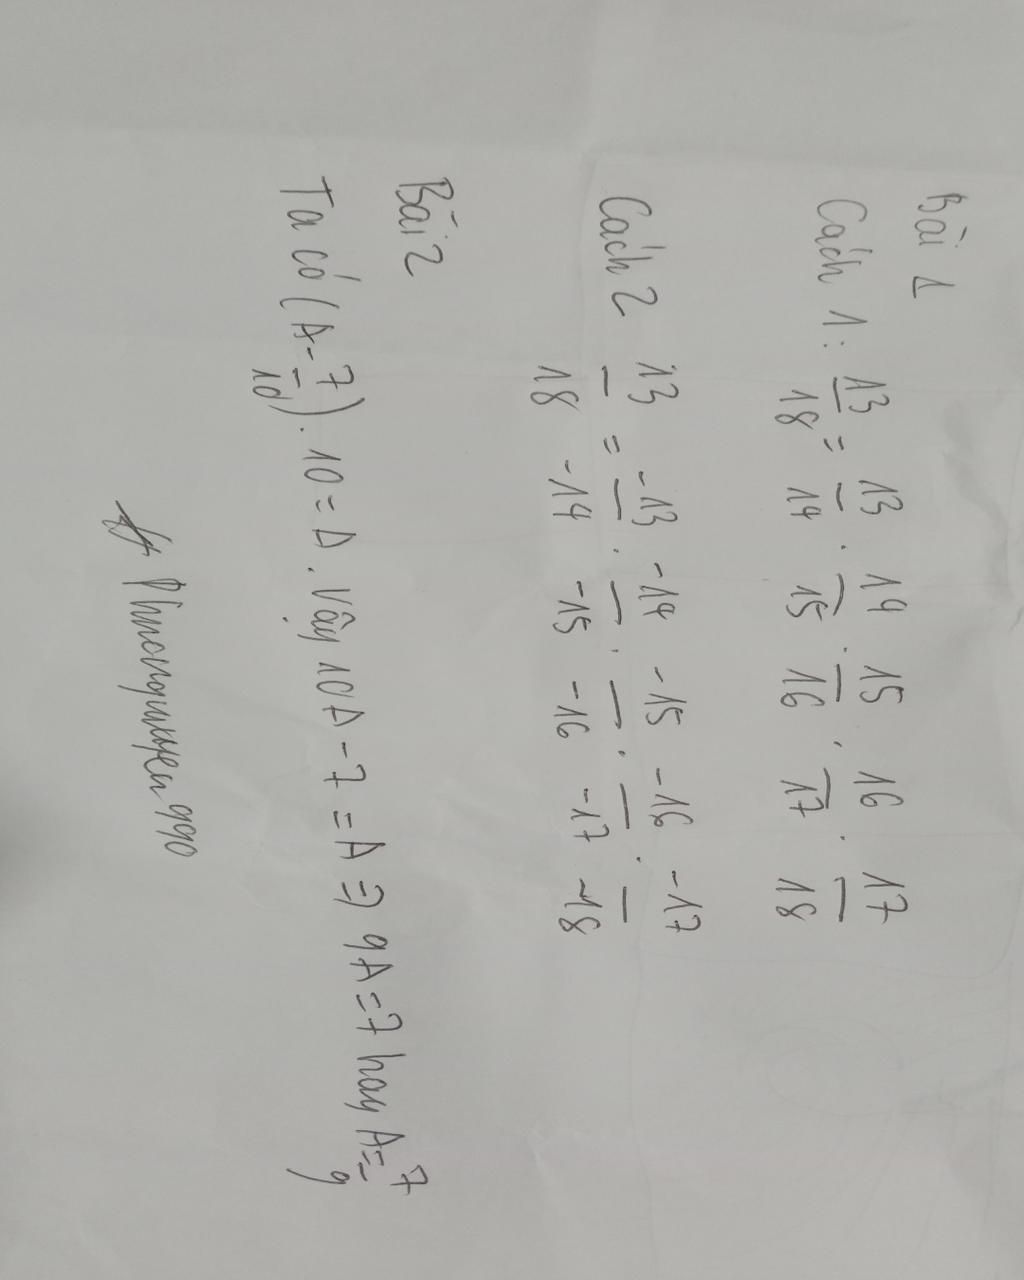 Bài 1
Cách 1: 13/18 = 13/14 . 14/15 . 15/16 . 16/17 . 17/18
Cách 2 13/18 = -13/-14 . -14/-15 . -15/-16 . -16/-17 . -17/-18
Bài 2
Ta có (A - 7/10) . 10 = A . Vậy 10A - 7 = A => 9A = 7 hay A = 7/9